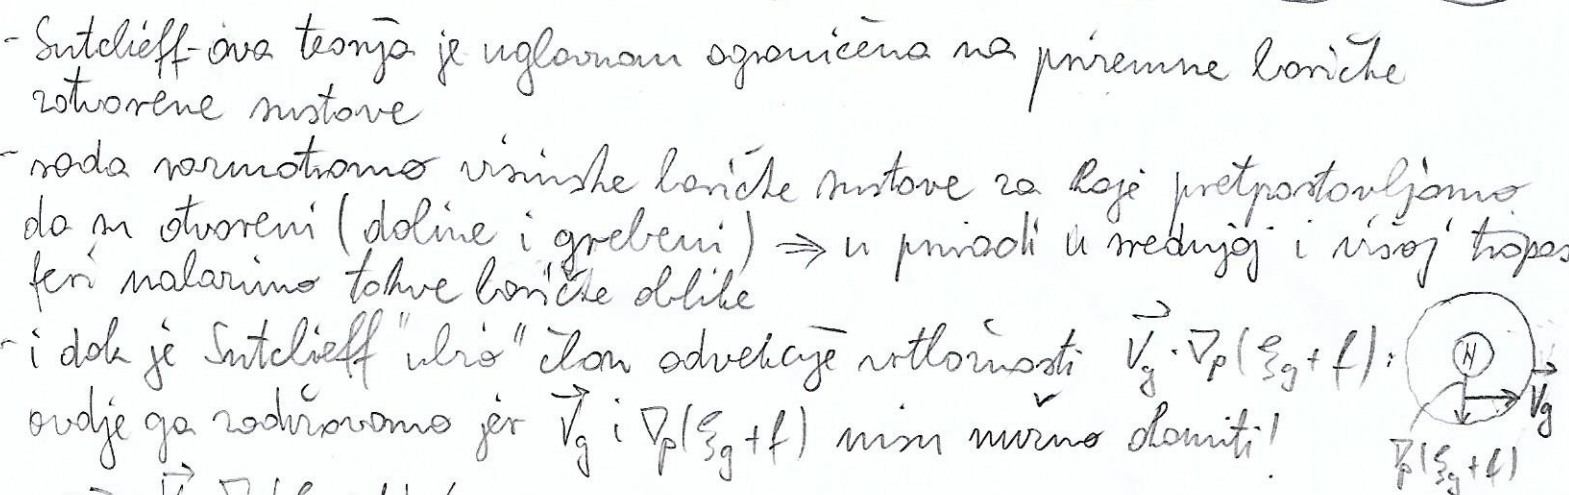 - Sutclieff-ova teorija je uglavnom ograničena na prizemne baričke
zatvorene sustave
- sada razmatramo visinske baričke sustave za koje pretpostavljamo
da su otvoreni (doline i grebeni) ⇒ u prirodi u srednjoj i višoj tropos
feri nalazimo takve baričke oblike
- i dok je Sutclieff "ubio" član advekcije vrtložnosti V⃗g · ∇p(ξg + f) :
ovdje ga zadržavamo jer V⃗g i ∇p(ξg + f) nisu nužno okomiti!
N
V⃗g
∇p(ξg + f)